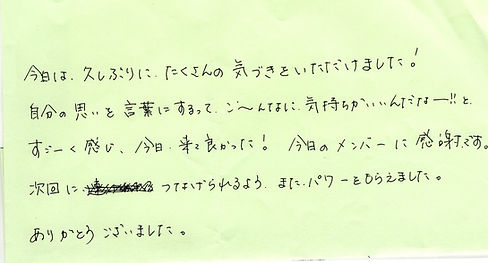 今日は、久しぶりに、たくさんの気づきをいただけました!
自分の思いを言葉にするって、こ〜んなに、気持ちがいいんだなー!!と、
すごーく感じ、今日、来て良かった! 今日のメンバーに感謝です。
次回に つなげられるよう、また、パワーをもらえました。
ありがとうございました。